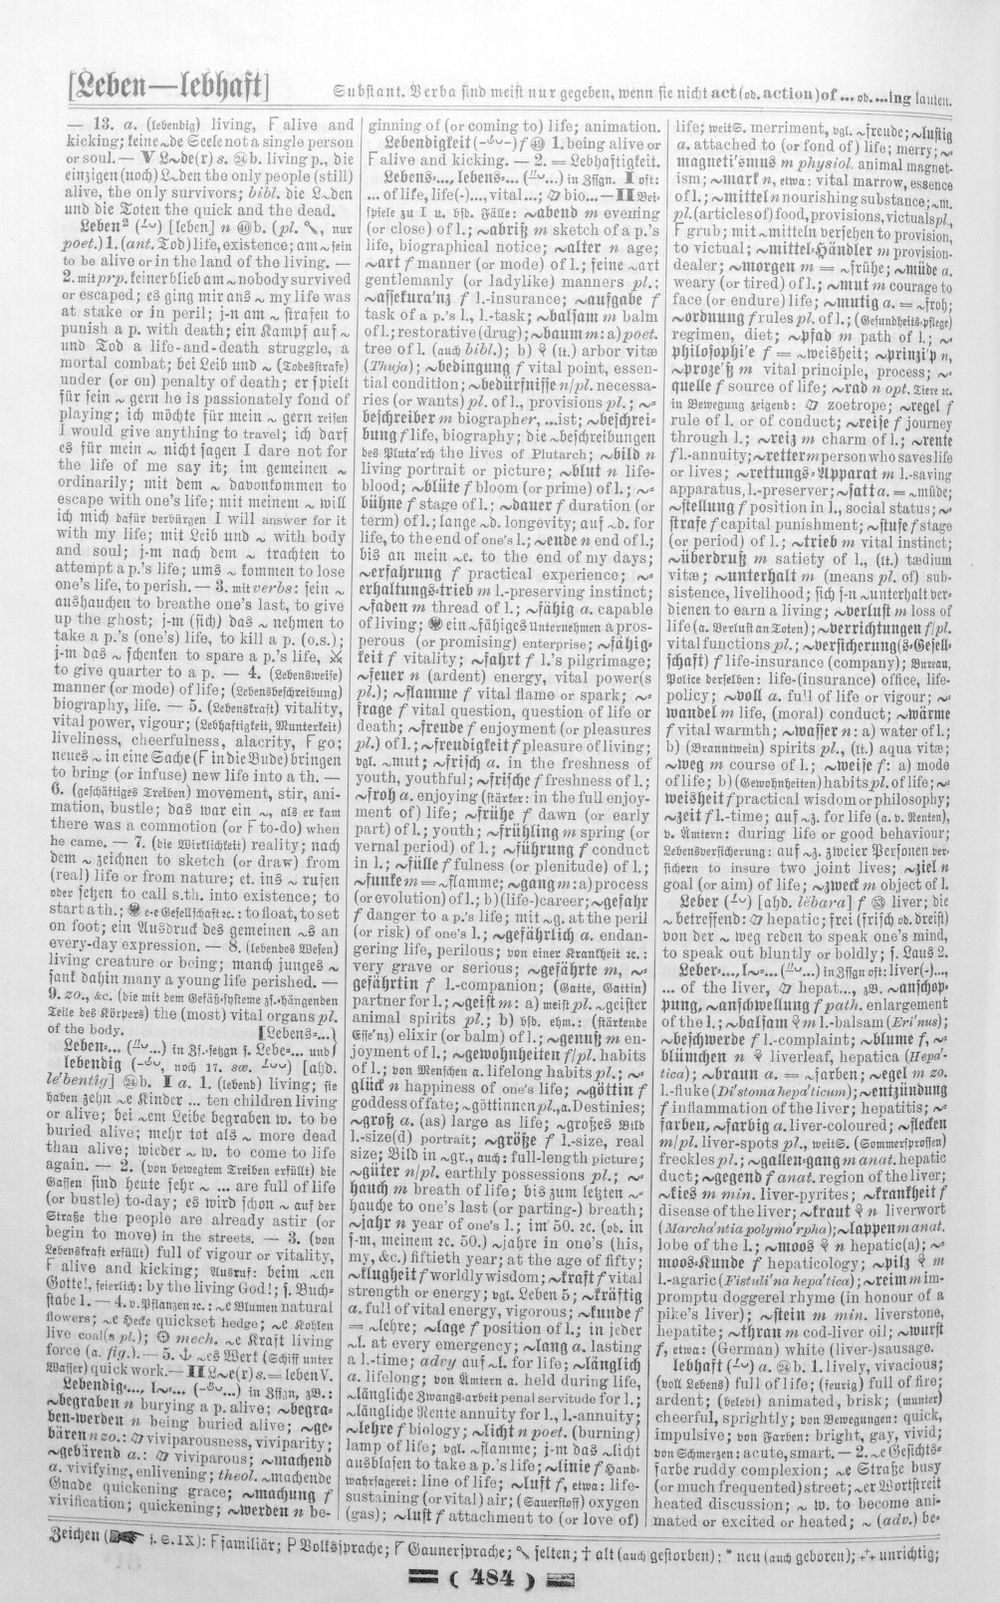 [Leben—lebhaft]
Substant. Verba sind meist nur gegeben, wenn sie nicht act (od. action) of ... od. ...ing lauten.
— 13. a. (lebendig) living, F alive and
kicking; keine ~de Seele not a single person
or soul. — V L~de(r) s. b. living p., die
einzigen (noch) L~den the only people (still)
alive, the only survivors; bibl. die L~den
und die Toten the quick and the dead.
Leben² [leben] n b. (pl. nur
poet.) 1. (ant. Tod) life, existence; am ~ sein
to be alive or in the land of the living. —
2. mit prp. keiner blieb am ~ nobody survived
or escaped; es ging mir ans ~ my life was
at stake or in peril; j-n am ~ strafen to
punish a p. with death; ein Kampf auf ~
und Tod a life-and-death struggle, a
mortal combat; bei Leib und ~ (Todesstrafe)
under (or on) penalty of death; er spielt
für sein ~ gern he is passionately fond of
playing; ich möchte für mein ~ gern reisen
I would give anything to travel; ich darf
es für mein ~ nicht sagen I dare not for
the life of me say it; im gemeinen ~
ordinarily; mit dem ~ davonkommen to
escape with one's life; mit meinem ~ will
ich mich dafür verbürgen I will answer for it
with my life; mit Leib und ~ with body
and soul; j-m nach dem ~ trachten to
attempt a p.'s life; ums ~ kommen to lose
one's life, to perish. — 3. mit verbs: sein ~
aushauchen to breathe one's last, to give
up the ghost; j-m (sich) das ~ nehmen to
take a p.'s (one's) life, to kill a p. (o.s.);
j-m das ~ schenken to spare a p.'s life, ⚔
to give quarter to a p. — 4. (Lebensweise)
manner (or mode) of life; (Lebensbeschreibung)
biography, life. — 5. (Lebenskraft) vitality,
vital power, vigour; (Lebhaftigkeit, Munterkeit)
liveliness, cheerfulness, alacrity, F go;
neues ~ in eine Sache (F in die Bude) bringen
to bring (or infuse) new life into a th. —
6. (geschäftiges Treiben) movement, stir, ani-
mation, bustle; das war ein ~, als er kam
there was a commotion (or F to-do) when
he came. — 7. (die Wirklichkeit) reality; nach
dem ~ zeichnen to sketch (or draw) from
(real) life or from nature; et. ins ~ rufen
oder setzen to call s.th. into existence; to
start a th.; e-e Gesellschaft ec.: to float, to set
on foot; ein Ausdruck des gemeinen ~s an
every-day expression. — 8. (lebendes Wesen)
living creature or being; manch junges ~
sank dahin many a young life perished. —
9. zo., &c. (die mit dem Gefäß-systeme zs.-hängenden
Teile des Körpers) the (most) vital organs pl.
of the body. [Lebens=...}
Leben=... in Zs.-setzgn s. Lebe=... und
lebendig (noch 17. sæ.) [ahd.
lebentîg] b. I a. 1. (lebend) living; sie
haben zehn ~e Kinder ... ten children living
or alive; bei ~em Leibe begraben w. to be
buried alive; mehr tot als ~ more dead
than alive; wieder ~ w. to come to life
again. — 2. (von bewegtem Treiben erfüllt) die
Gassen sind heute sehr ~ ... are full of life
(or bustle) to-day; es wird schon ~ auf der
Straße the people are already astir (or
begin to move) in the streets. — 3. (von
Lebenskraft erfüllt) full of vigour or vitality,
F alive and kicking; Ausruf: beim ~en
Gotte!, feierlich: by the living God!; s. Buch=
stabe 1. — 4. v. Pflanzen ec.: ~e Blumen natural
flowers; ~e Hecke quickset hedge; ~e Kohlen
live coal(s pl.); mech. ~e Kraft living
force (a. fig.). — 5. ⚓ ~es Werk (Schiff unter
Wasser) quick work. — II L~e(r) s. = leben V.
Lebendig=..., l~=... in Zssgn, zB.:
~begraben n burying a p. alive; ~begra=
ben-werden n being buried alive; ~ge=
bären n zo.: viviparousness, viviparity;
~gebärend a.: viviparous; ~machend
a. vivifying, enlivening; theol. ~machende
Gnade quickening grace; ~machung f
vivification; quickening; ~werden n be-
ginning of (or coming to) life; animation.
Lebendigkeit f 1. being alive or
F alive and kicking. — 2. = Lebhaftigkeit.
Lebens=..., lebens=... in Zssgn. I oft:
... of life, life(-)..., vital...; bio... — II Bei=
spiele zu I u. bsd. Fälle: ~abend m evening
(or close) of l.; ~abriß m sketch of a p.'s
life, biographical notice; ~alter n age;
~art f manner (or mode) of l.; feine ~art
gentlemanly (or ladylike) manners pl.;
~assekura'nz f l.-insurance; ~aufgabe f
task of a p.'s l., l.-task; ~balsam m balm
of l.; restorative (drug); ~baum m: a) poet.
tree of l. (auch bibl.); b) (lt.) arbor vitæ
(Thuja); ~bedingung f vital point, essen-
tial condition; ~bedürfnisse n/pl. necessa-
ries (or wants) pl. of l., provisions pl.; ~=
beschreiber m biographer, ...ist; ~beschrei=
bung f life, biography; die ~beschreibungen
des Pluta'rch the lives of Plutarch; ~bild n
living portrait or picture; ~blut n life-
blood; ~blüte f bloom (or prime) of l.; ~=
bühne f stage of l.; ~dauer f duration (or
term) of l.; lange ~d. longevity; auf ~d. for
life, to the end of one's l.; ~ende n end of l.;
bis an mein ~e. to the end of my days;
~erfahrung f practical experience; ~=
erhaltungs=trieb m l.-preserving instinct;
~faden m thread of l.; ~fähig a. capable
of living; ein ~fähiges Unternehmen a pros-
perous (or promising) enterprise; ~fähig=
keit f vitality; ~fahrt f l.'s pilgrimage;
~feuer n (ardent) energy, vital power(s
pl.); ~flamme f vital flame or spark; ~=
frage f vital question, question of life or
death; ~freude f enjoyment (or pleasures
pl.) of l.; ~freudigkeit f pleasure of living;
vgl. ~mut; ~frisch a. in the freshness of
youth, youthful; ~frische f freshness of l.;
~froh a. enjoying (stärker: in the full enjoy-
ment of) life; ~frühe f dawn (or early
part) of l.; youth; ~frühling m spring (or
vernal period) of l.; ~führung f conduct
in l.; ~fülle f fulness (or plenitude) of l.;
~funke m = ~flamme; ~gang m: a) process
(or evolution) of l.; b) (life-)career; ~gefahr
f danger to a p.'s life; mit ~g. at the peril
(or risk) of one's l.; ~gefährlich a. endan-
gering life, perilous; von einer Krankheit ec.:
very grave or serious; ~gefährte m, ~=
gefährtin f l.-companion; (Gatte, Gattin)
partner for l.; ~geist m: a) meist pl. ~geister
animal spirits pl.; b) bsd. ehm.: (stärkende
Esse'nz) elixir (or balm) of l.; ~genuß m en-
joyment of l.; ~gewohnheiten f/pl. habits
of l.; von Menschen a. lifelong habits pl.; ~=
glück n happiness of one's life; ~göttin f
goddess of fate; ~göttinnen pl., a. Destinies;
~groß a. (as) large as life; ~großes Bild
l.-size(d) portrait; ~größe f l.-size, real
size; Bild in ~gr., auch: full-length picture;
~güter n/pl. earthly possessions pl.; ~=
hauch m breath of life; bis zum letzten ~=
hauche to one's last (or parting-) breath;
~jahr n year of one's l.; im 50. ec. (od. in
s-m, meinem ec. 50.) ~jahre in one's (his,
my, &c.) fiftieth year; at the age of fifty;
~klugheit f worldly wisdom; ~kraft f vital
strength or energy; vgl. Leben 5; ~kräftig
a. full of vital energy, vigorous; ~kunde f
= ~lehre; ~lage f position of l.; in jeder
~l. at every emergency; ~lang a. lasting
a l.-time; advy auf ~l. for life; ~länglich
a. lifelong; von Ämtern a. held during life,
~längliche Zwangs-arbeit penal servitude for l.;
~längliche Rente annuity for l., l.-annuity;
~lehre f biology; ~licht n poet. (burning)
lamp of life; vgl. ~flamme; j-m das ~licht
ausblasen to take a p.'s life; ~linie f Hand=
wahrsagerei: line of life; ~luft f, etwa: life-
sustaining (or vital) air; (Sauerstoff) oxygen
(gas); ~lust f attachment to (or love of)
life; weitS. merriment, vgl. ~freude; ~lustig
a. attached to (or fond of) life; merry; ~=
magneti'smus m physiol. animal magnet-
ism; ~mark n, etwa: vital marrow, essence
of l.; ~mittel n nourishing substance; ~m.
pl. (articles of) food, provisions, victuals pl.,
F grub; mit ~mitteln versehen to provision,
to victual; ~mittel=Händler m provision-
dealer; ~morgen m = ~frühe; ~müde a.
weary (or tired) of l.; ~mut m courage to
face (or endure) life; ~mutig a. = ~froh;
~ordnung f rules pl. of l.; (Gesundheits-pflege)
regimen, diet; ~pfad m path of l.; ~=
philosophi'e f = ~weisheit; ~prinzi'p n,
~proze'ß m vital principle, process; ~=
quelle f source of life; ~rad n opt. Tiere ec.
in Bewegung zeigend: zoetrope; ~regel f
rule of l. or of conduct; ~reise f journey
through l.; ~reiz m charm of l.; ~rente
f l.-annuity; ~retter m person who saves life
or lives; ~rettungs=Apparat m l.-saving
apparatus, l.-preserver; ~satt a. = ~müde;
~stellung f position in l., social status; ~=
strafe f capital punishment; ~stufe f stage
(or period) of l.; ~trieb m vital instinct;
~überdruß m satiety of l., (lt.) tædium
vitæ; ~unterhalt m (means pl. of) sub-
sistence, livelihood; sich s-n ~unterhalt ver=
dienen to earn a living; ~verlust m loss of
life (a. Verlust an Toten); ~verrichtungen f/pl.
vital functions pl.; ~versicherung(s=Gesell=
schaft) f life-insurance (company); Bureau,
Police derselben: life-(insurance) office, life-
policy; ~voll a. full of life or vigour; ~=
wandel m life, (moral) conduct; ~wärme
f vital warmth; ~wasser n: a) water of l.;
b) (Branntwein) spirits pl., (lt.) aqua vitæ;
~weg m course of l.; ~weise f: a) mode
of life; b) (Gewohnheiten) habits pl. of life; ~=
weisheit f practical wisdom or philosophy;
~zeit f l.-time; auf ~z. for life (a. v. Renten),
v. Ämtern: during life or good behaviour;
Lebensversicherung: auf ~z. zweier Personen ver=
sichern to insure two joint lives; ~ziel n
goal (or aim) of life; ~zweck m object of l.
Leber [ahd. lëbara] f liver; die
~ betreffend: hepatic; frei (frisch od. dreist)
von der ~ weg reden to speak one's mind,
to speak out bluntly or boldly; s. Laus 2.
Leber=..., l~=... in Zssgn oft: liver(-)...,
... of the liver, hepat..., zB. ~anschop=
pung, ~anschwellung f path. enlargement
of the l.; ~balsam m l.-balsam (Eri'nus);
~beschwerde f l.-complaint; ~blume f, ~=
blümchen n liverleaf, hepatica (Hepa'-
tica); ~braun a. = ~farben; ~egel m zo.
l.-fluke (Di'stoma hepa'ticum); ~entzündung
f inflammation of the liver; hepatitis; ~=
farben, ~farbig a. liver-coloured; ~flecken
m/pl. liver-spots pl., weitS. (Sommersprossen)
freckles pl.; ~gallen=gang m anat. hepatic
duct; ~gegend f anat. region of the liver;
~kies m min. liver-pyrites; ~krankheit f
disease of the liver; ~kraut n liverwort
(Marcha'ntia polymo'rpha); ~lappen m anat.
lobe of the l.; ~moos n hepatic(a); ~=
moos=Kunde f hepaticology; ~pilz m
l.-agaric (Fistuli'na hepa'tica); ~reim m im-
promptu doggerel rhyme (in honour of a
pike's liver); ~stein m min. liverstone,
hepatite; ~thran m cod-liver oil; ~wurst
f, etwa: (German) white (liver-)sausage.
lebhaft a. b. 1. lively, vivacious;
(voll Lebens) full of life; (feurig) full of fire;
ardent; (belebt) animated, brisk; (munter)
cheerful, sprightly; von Bewegungen: quick,
impulsive; von Farben: bright, gay, vivid;
von Schmerzen: acute, smart. — 2. ~e Gesichts=
farbe ruddy complexion; ~e Straße busy
(or much frequented) street; ~er Wortstreit
heated discussion; ~ w. to become ani-
mated or excited or heated; ~ (adv.) be=
Zeichen (☛ s. S. IX): F familiär; P Volkssprache; Γ Gaunersprache; selten; † alt (auch gestorben); * neu (auch geboren); unrichtig;
( 484 )